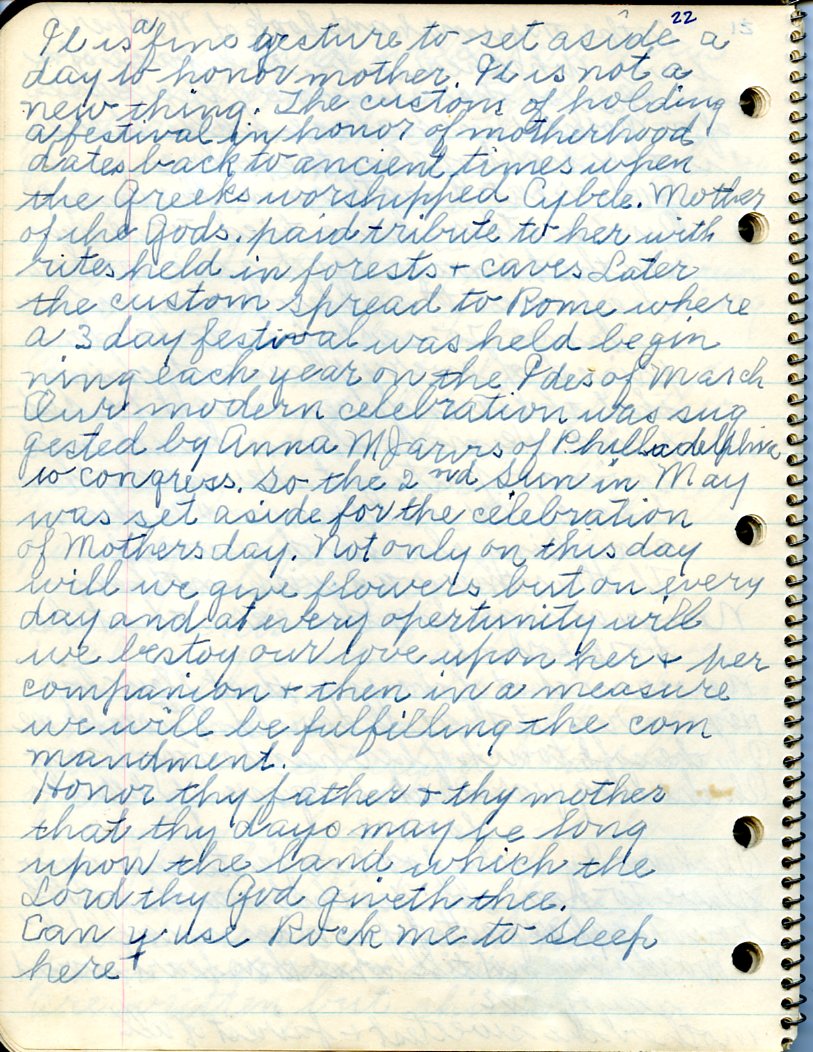 22
It is a fine gesture to set aside a
day to honor mother. It is not a
new thing. The custom of holding
a festival in honor of motherhood
dates back to ancient times when
the Greeks worshipped Cybele. Mother
of the Gods. paid tribute to her with
rites held in forests + caves Later
the custom spread to Rome where
a 3 day festival was held begin
ning each year on the Ides of March
Our modern celebration was sug
gested by Anna M Jarvis of Philladelphia
to congress. So the 2nd Sun in May
was set aside for the celebration
of Mothers day. Not only on this day
will we give flowers but on every
day and at every opertunity will
we bestoy our love upon her + her
companion + then in a measure
we will be fulfilling the com
mandment.
Honor thy father + thy mother
that thy days may be long
upon the land which the
Lord thy God giveth thee.
Can y. use Rock me to Sleep
here